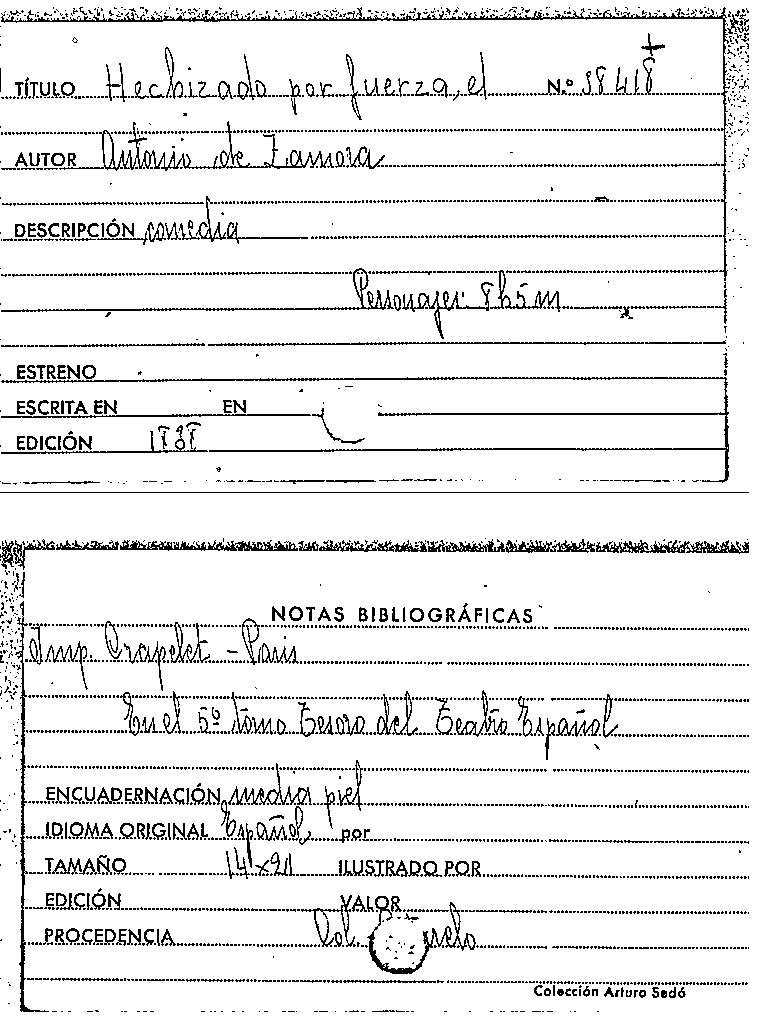 TÍTULO Hechizado por fuerza, el N.º 38418
+
AUTOR Antonio de Zamora
DESCRIPCIÓN comedia
Personajes: 8 h 5 m
x
ESTRENO
ESCRITA EN EN
EDICIÓN 1838
NOTAS BIBLIOGRÁFICAS
Imp. Crapelet - Paris
En el 5º tomo Tesoro del Teatro Español
ENCUADERNACIÓN media piel
IDIOMA ORIGINAL Español por
TAMAÑO 14x21 ILUSTRADO POR
EDICIÓN VALOR
PROCEDENCIA Col.
Colección Arturo Sedó